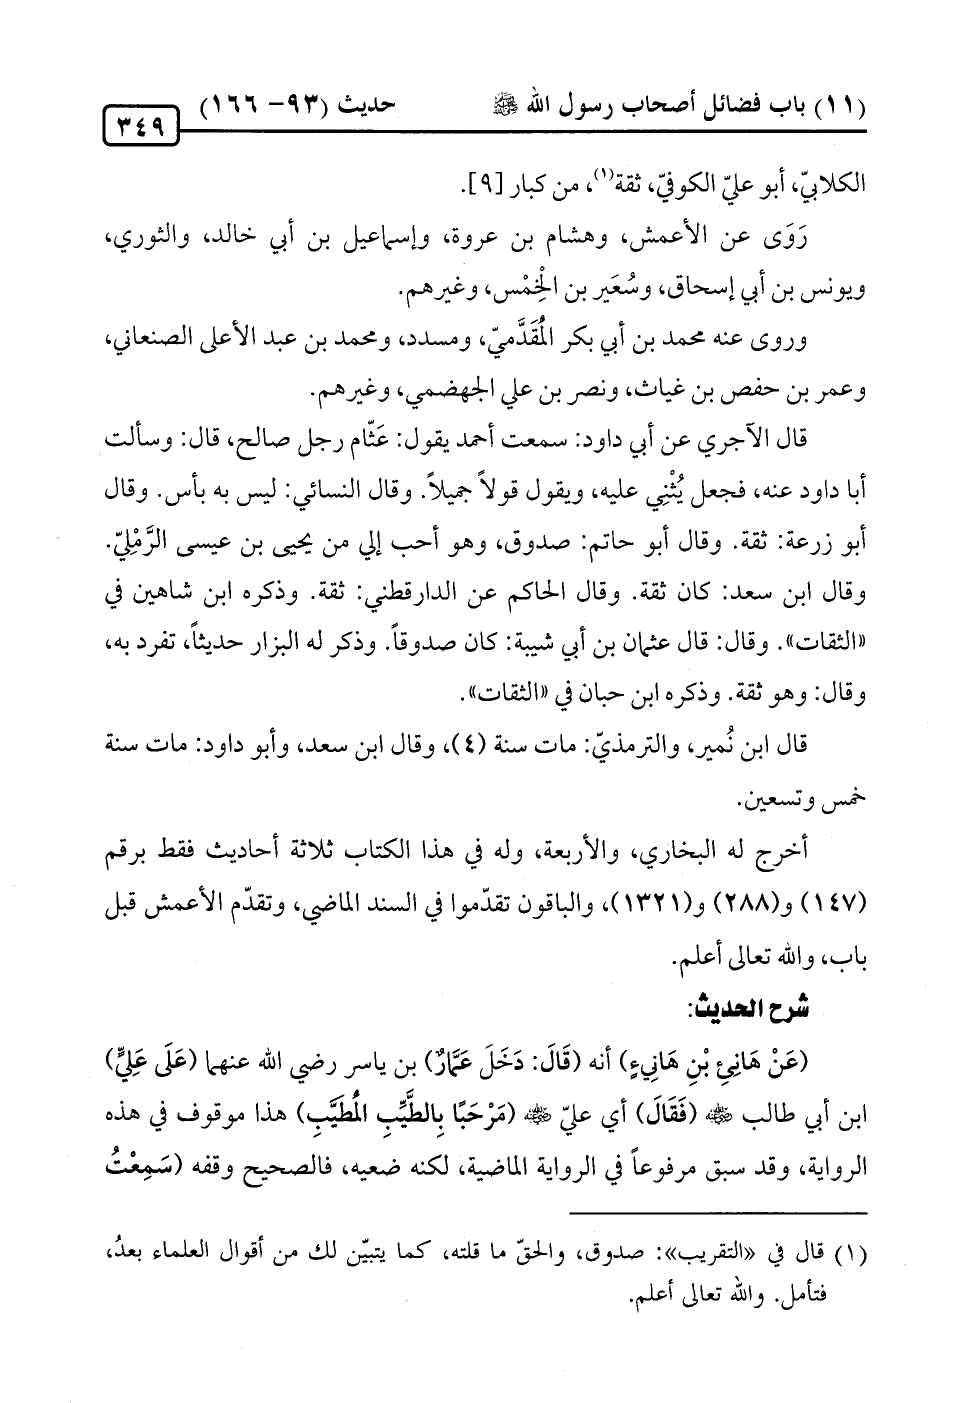 (١١) باب فضائل أصحاب رسول الله ﷺ حديث (٩٣- ١٦٦)
٣٤٩
الكلابيّ، أبو عليّ الكوفيّ، ثقة(١)، من كبار [٩].
رَوَى عن الأعمش، وهشام بن عروة، وإسماعيل بن أبي خالد، والثوري،
ويونس بن أبي إسحاق، وسُعَير بن الْخِمْس، وغيرهم.
وروى عنه محمد بن أبي بكر الْمُقَدَّميّ، ومسدد، ومحمد بن عبد الأعلى الصنعاني،
وعمر بن حفص بن غياث، ونصر بن علي الجهضمي، وغيرهم.
قال الآجري عن أبي داود: سمعت أحمد يقول: عَثّام رجل صالح، قال: وسألت
أبا داود عنه، فجعل يُثْنِي عليه، ويقول قولاً جميلاً. وقال النسائي: ليس به بأس. وقال
أبو زرعة: ثقة. وقال أبو حاتم: صدوق، وهو أحب إلي من يحيى بن عيسى الرَّمْلِيّ.
وقال ابن سعد: كان ثقة. وقال الحاكم عن الدارقطني: ثقة. وذكره ابن شاهين في
«الثقات». وقال: قال عثمان بن أبي شيبة: كان صدوقاً. وذكر له البزار حديثاً، تفرد به،
وقال: وهو ثقة. وذكره ابن حبان في «الثقات».
قال ابن نُمير، والترمذيّ: مات سنة (٤)، وقال ابن سعد، وأبو داود: مات سنة
خمس وتسعين.
أخرج له البخاري، والأربعة، وله في هذا الكتاب ثلاثة أحاديث فقط برقم
(١٤٧) و(٢٨٨) و(١٣٢١)، والباقون تقدّموا في السند الماضي، وتقدّم الأعمش قبل
باب، والله تعالى أعلم.
شرح الحديث:
(عَنْ هَانِئِ بْنِ هَانِيءٍ) أنه (قَالَ: دَخَلَ عَمَّارٌ) بن ياسر رضي الله عنهما (عَلَى عَلِيٍّ)
ابن أبي طالب ﵁ (فَقَالَ) أي عليّ ﵁ (مَرْحَبًا بِالطَّيِّبِ الْمُطَيَّبِ) هذا موقوف في هذه
الرواية، وقد سبق مرفوعاً في الرواية الماضية، لكنه ضعيه، فالصحيح وقفه (سَمِعْتُ
(١) قال في «التقريب»: صدوق، والحقّ ما قلته، كما يتبيّن لك من أقوال العلماء بعدُ،
فتأمل. والله تعالى أعلم.